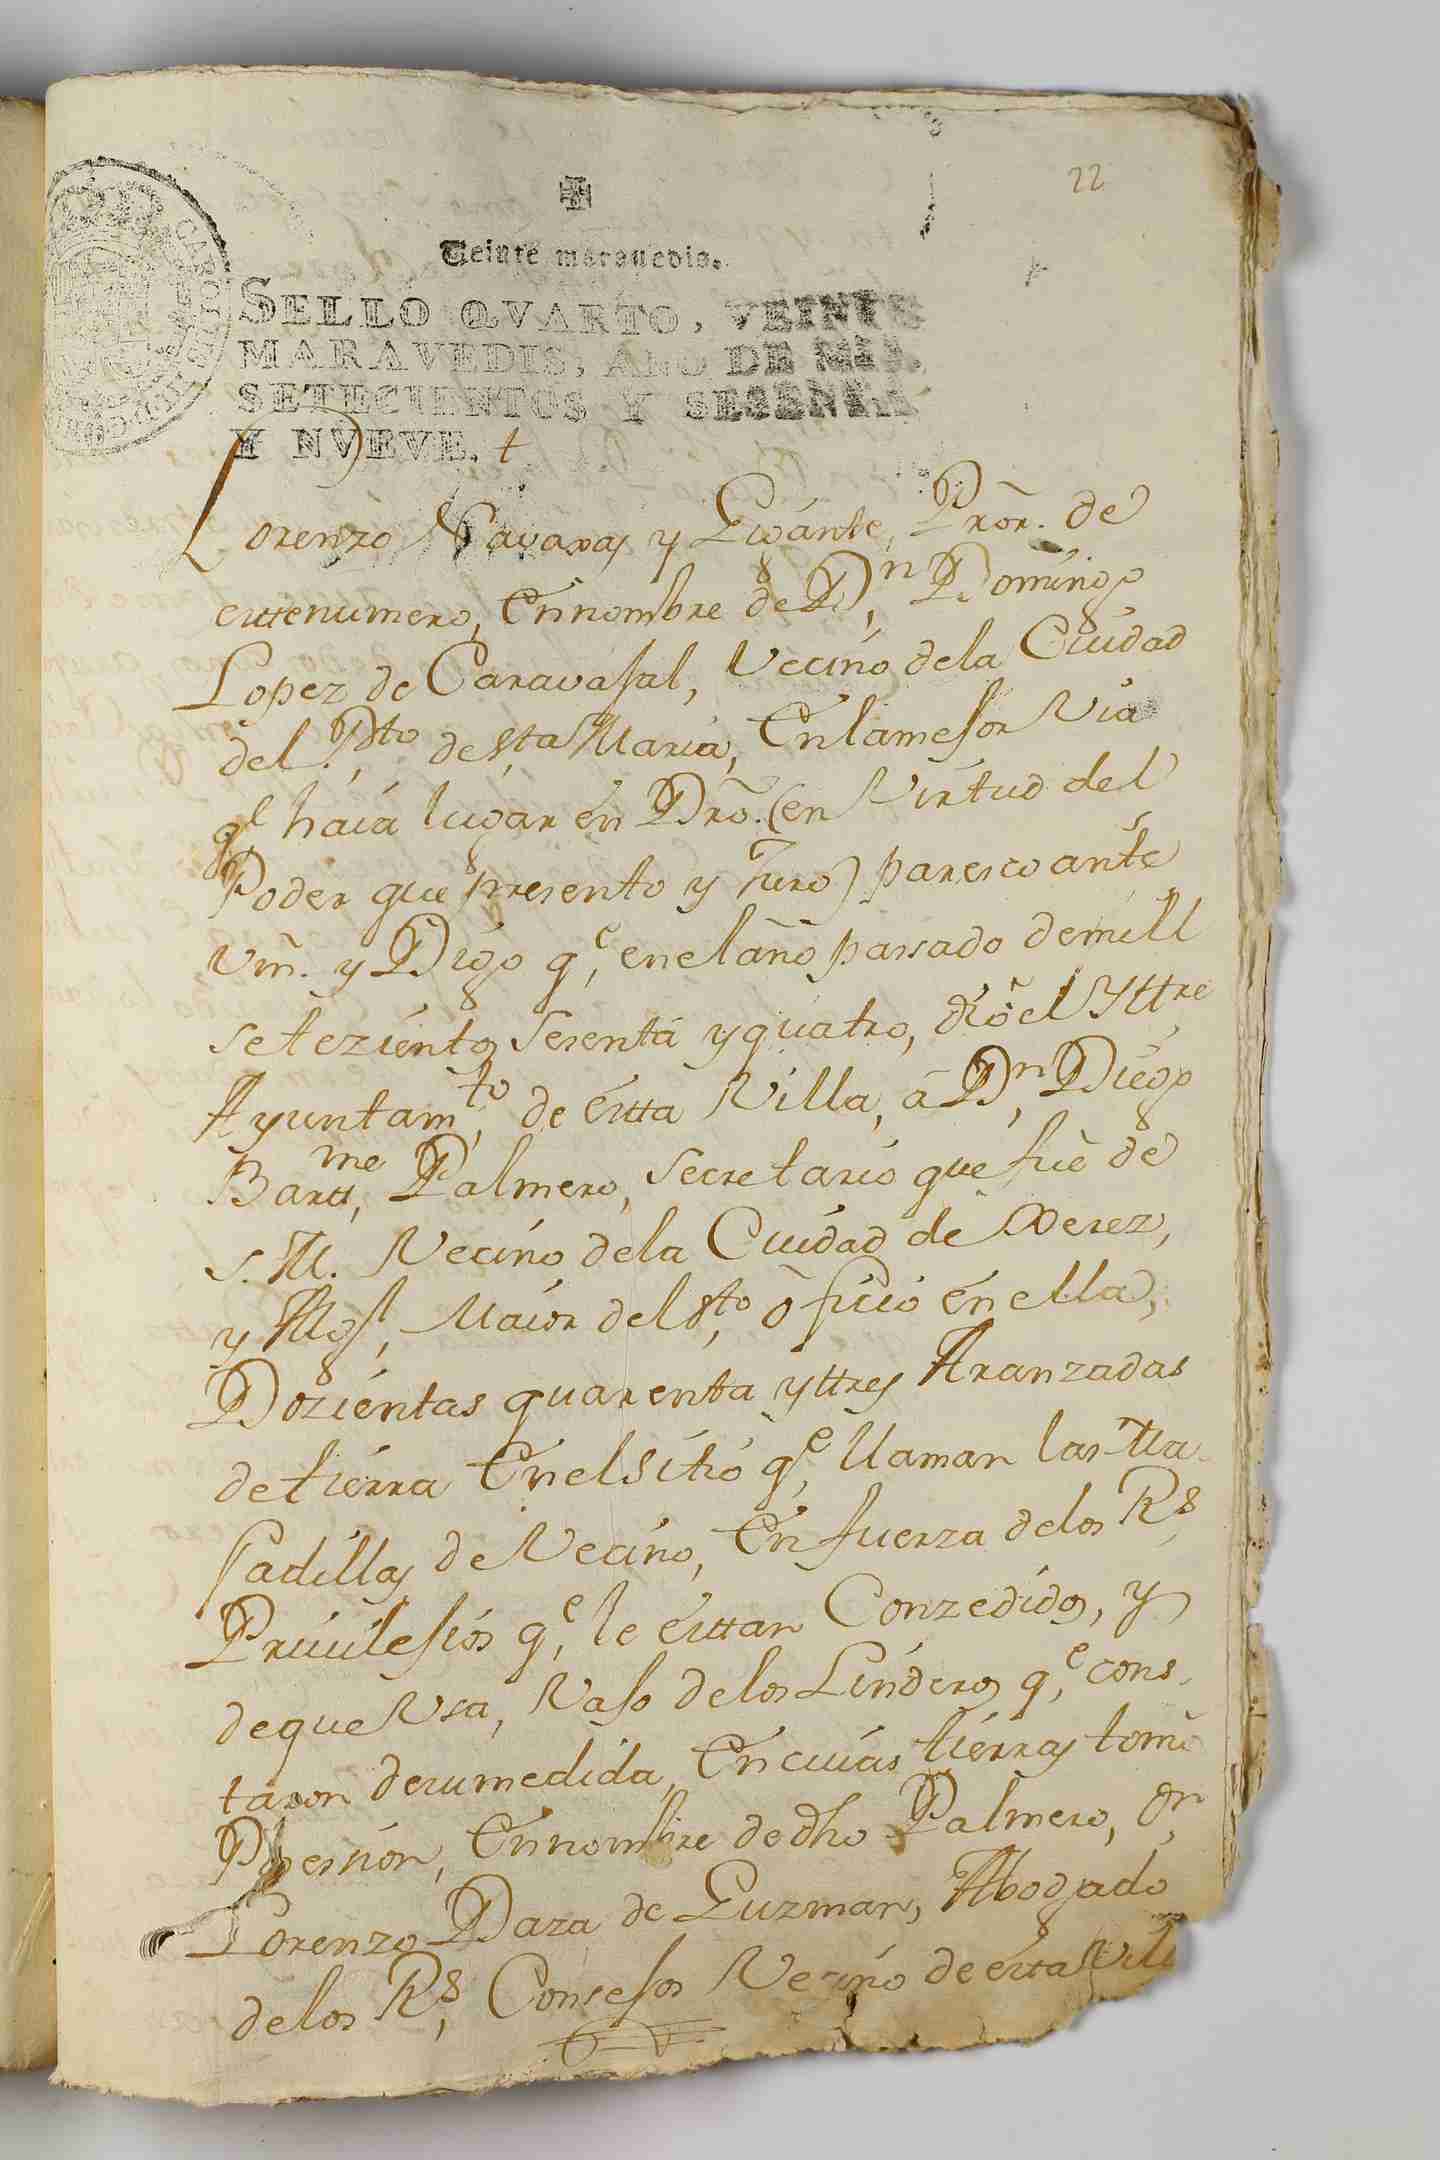 22
Veinte maravedis.
SELLO QVARTO, VEINTE
MARAVEDIS, AÑO DE MIL
SETECIENTOS Y SESENTA
Y NVEVE. +
Lorenzo Navaxas y Gigánte, Prõr. de
estenumero, Ennombre de Dn, Domingo
Lopez de Caravajal, Vecino dela Ciudad
del Pto de Sta Maria, Enlamejor Via
qe haia lugar en Dro. (en Virtud del
Poder que presento y Juro) paresco ante
Vm. y Digo qe, enel año passado demill
setezientos sesenta y quatro, dió el Ylltre
Ayuntamto, de esta Villa, á Dn, Diego
Bartme, Palmero, secretario que fue de
S. M. Vecino dela Ciudad de Xerez,
y Maior del Sto, oficio en ella,
Dozientas quarenta y tres Aranzadas
detierra Enelsitio qe, llaman las Ma-
jadillas de Vecino, En fuerza delos Rs,
Privilejios qe, le estan Conzedidos, y
deque Vsa, Vajo delos Linderos qe, cons-
taron desumedida, En cuias tierras tomó
Posession, Ennombre de dho Palmero, Dn,
Lorenzo Daza de Guzman, Abogado
delos Rs, Consejos Vecino de esta Villa